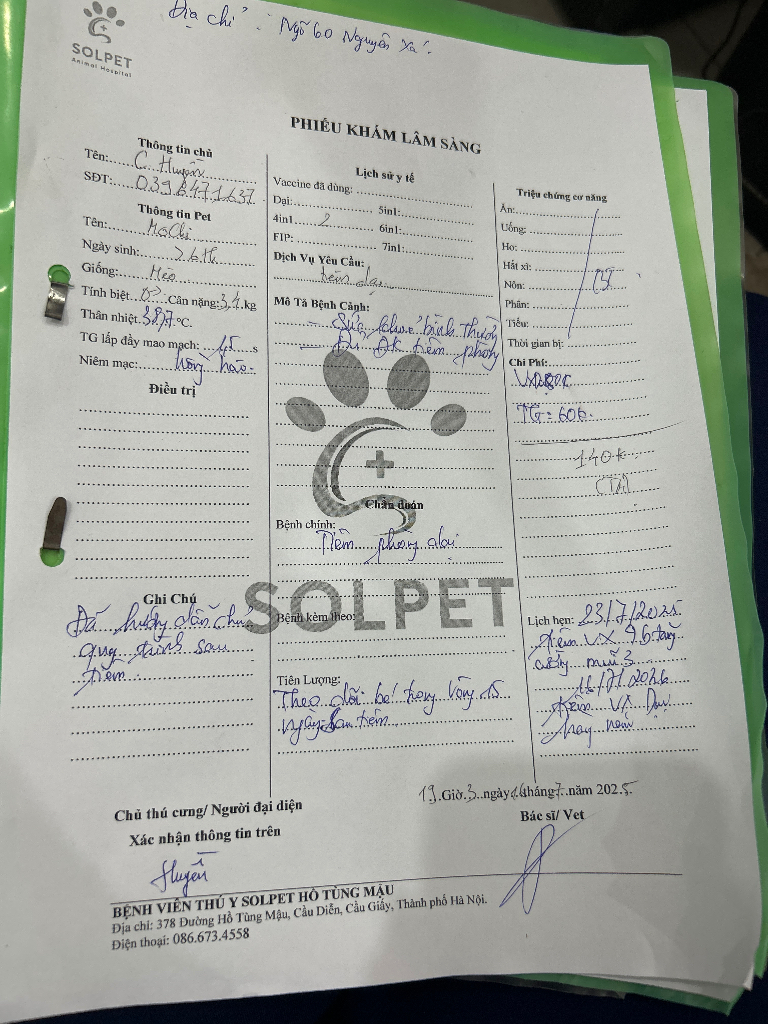 Địa chỉ : Ngõ 60 Nguyên Xá.
SOLPET
Animal Hospital
PHIẾU KHÁM LÂM SÀNG
Thông tin chủ
Tên: C. Huyền
SĐT: 0398471637
Thông tin Pet
Tên: MoChi
Ngày sinh: >6th
Giống: Mèo
Tính biệt Cân nặng: 3,4 kg
Thân nhiệt 38,7 °C.
TG lấp đầy mao mạch: 1,5 s
Niêm mạc: hồng hào.
Điều trị
Ghi Chú
Đã hướng dẫn chủ
quy trình sau
tiêm
Lịch sử y tế
Vaccine đã dùng:
Dại: 5in1:
4in1 2 6in1:
FIP: 7in1:
Dịch Vụ Yêu Cầu:
tiêm dại
Mô Tả Bệnh Cảnh:
- Sức khoẻ bình thường
- Đủ ĐK tiêm phòng
Chẩn đoán
Bệnh chính:
Tiêm phòng dại
SOLPET
Bệnh kèm theo:
Tiên Lượng:
Theo dõi bé trong vòng 15
ngày sau tiêm
Triệu chứng cơ năng
Ăn:
Uống:
Ho:
Hắt xì:
Nôn:
Phân:
Tiểu:
Thời gian bị:
Chi Phí:
140k
Lịch hẹn: 23/7/2025
tiêm VX 4b tăng
cường mũi 3
16/7/2026
tiêm VX Dại
hàng năm
19 Giờ 3 ngày 16 tháng 7 năm 2025
Chủ thú cưng/ Người đại diện
Xác nhận thông tin trên
Huyền
Bác sĩ/ Vet
BỆNH VIỆN THÚ Y SOLPET HỒ TÙNG MẬU
Địa chỉ: 378 Đường Hồ Tùng Mậu, Cầu Diễn, Cầu Giấy, Thành phố Hà Nội.
Điện thoại: 086.673.4558